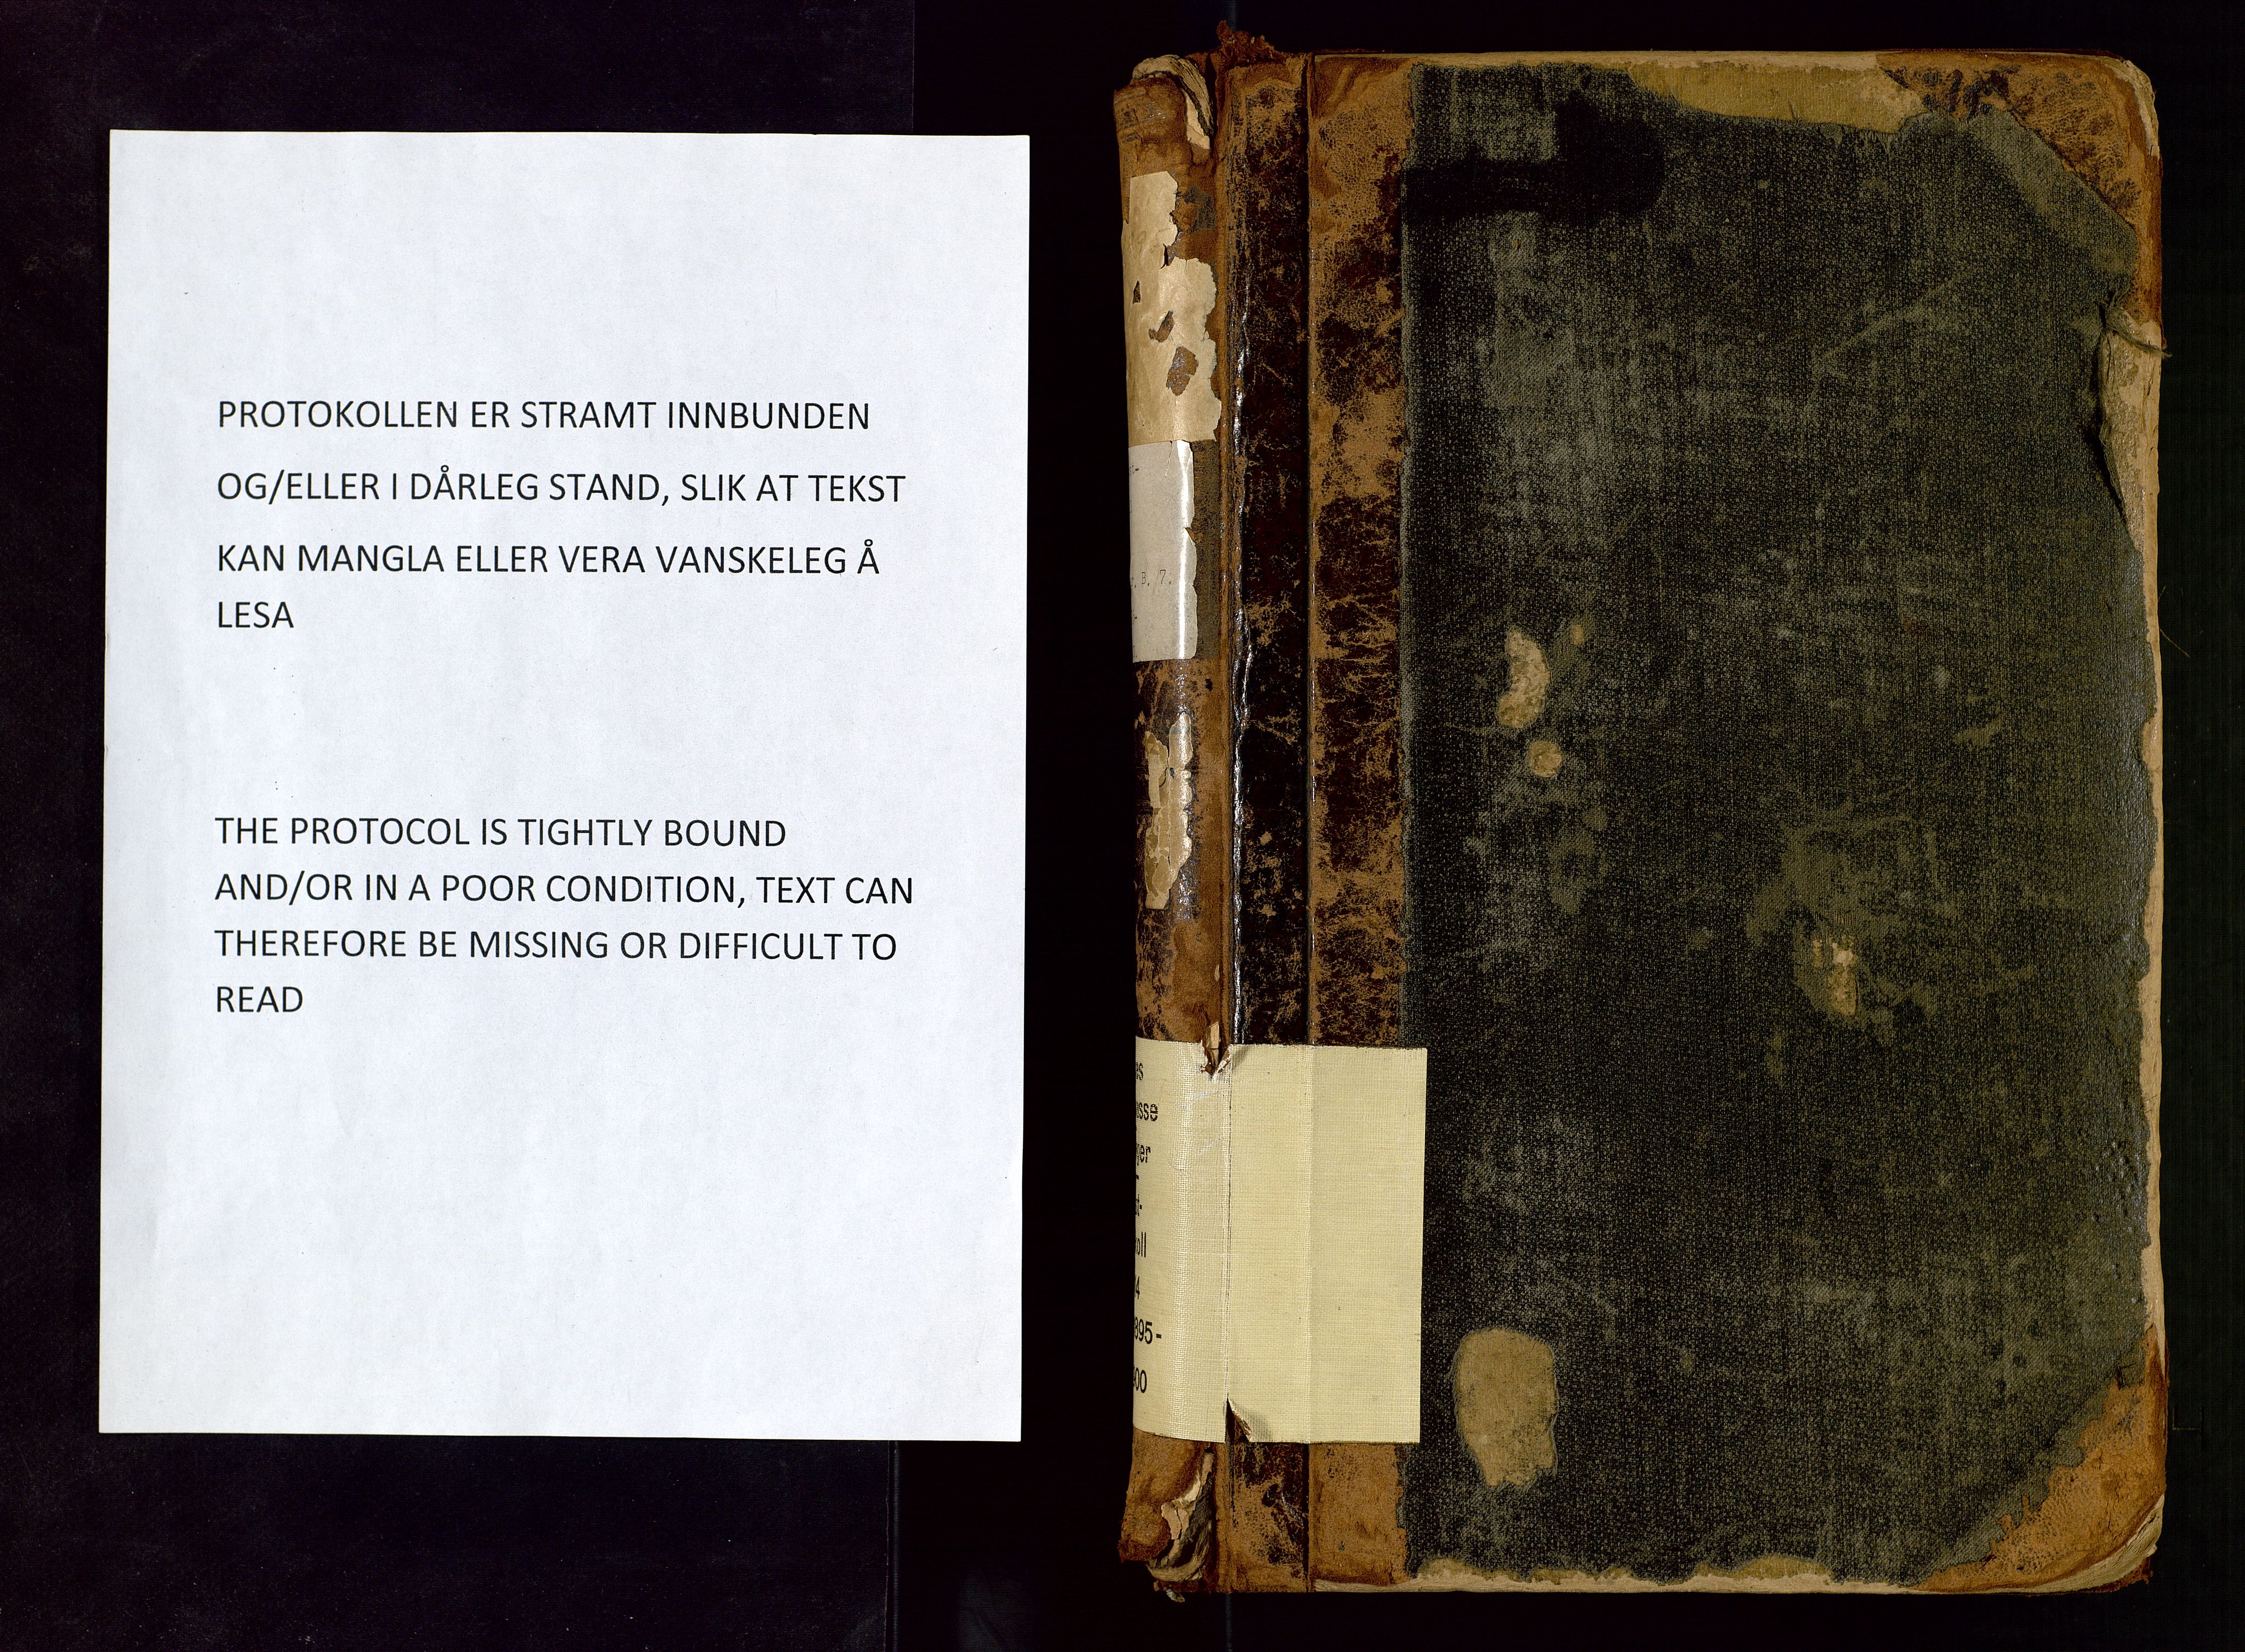 PROTOKOLLEN ER STRAMT INNBUNDEN
OG/ELLER I DÅRLEG STAND, SLIK AT TEKST
KAN MANGLA ELLER VERA VANSKELEG Å
LESA
THE PROTOCOL IS TIGHTLY BOUND
AND/OR IN A POOR CONDITION, TEXT CAN
THEREFORE BE MISSING OR DIFFICULT TO
READ
B. 7.